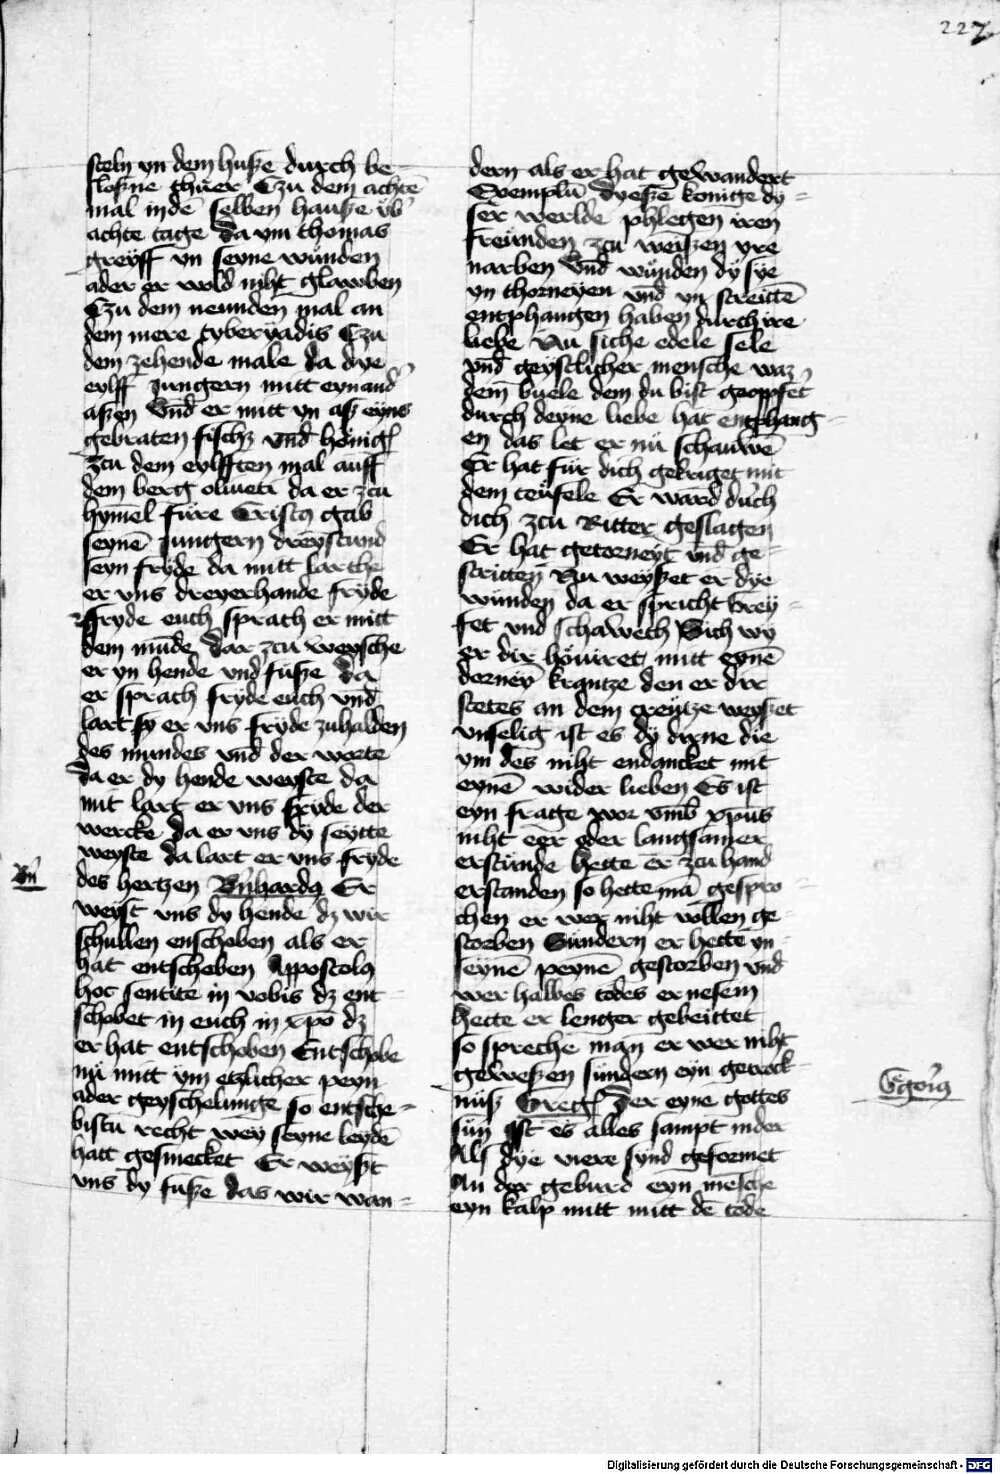 227
steln yn dem husze durch be-
sloszne thuer Czu dem achtē
mal in dē selben hausze vb̾
achte tage da ym thomas
greyff yn seyne wunden
ader er wold niht glawben
Czu dem neunden mal an
dem mere tyberyadis Czu
dem zehende male da dye
eylff Jungern mitt eynand̾
aszen vnd er mitt yn asz eyns
gebraten fischz vnd hönig
zcu dem eylfften mal auff
dem berg oliueti da er zcu
hymel füre Cristꝰ gab
seynē Jungern dreystund
seyn fryde da mitt larthe
er vns dreyerhande fryde
ffryde euch sprach er mitt
dem mūde dar zcu weysche
er yn hende vnd fusze da
er sprach fryde euch vnd
lart sy er vns fryde zuhalden
des mundes vnd der worte
da er dy hende weyste da
mit lart er vns fryde der
wercke da er vns dy seytte
weyste da lart er vns fryde
des hertzen Bn̄hardꝰ Er
weyst vns dy hende dz wir
schullen enscheben als er
hat entscheben Appostolꝰ
hoc sentite in vobis dz ent-
schobet in euch in xpō dz
er hat entschoben Entschobe
nü mitt ym etzlicher peyn
ader geyschelunge so entsche-
bistu recht wey seyne leydē
hatt gesmecket Er weyszt
vns dy fusze das wir wan-
Bn̄
dern als er hat gewandert
Exemplū dyesze konige dy-
ser werlde phlegen iren
freunden zcu weiszen yre
narben vnd wunden dy sye
yn thorneyen vnd yn streittē
entphangen haben durch ire
liebe Nu siche edele sele
vnd geystlicher mensche waz
dem buele dem du bist geoppfet
durch deyne liebe hat entphang-
en das let er nü schauwē
Er hat für dich gekriget mit
dem teüfele Er ward duch
dich zcu Ritter geslagen
Er hat getorneyt vnd ge-
stritten Nu weyszet er dye
wunden da er spricht Grey-
fet vnd schawech Sich wy
er dir höuiret mitt eynē
dorney krantze den er dir
stetes an dem creutze weyszet
vnselig ist es dy dirne die
ym des niht endancket mit
eynē wider lieben Es ist
eyn frage wor vmb xp̄us
niht eer oder langsamer
erstunde hette er zcu hand
erstanden so hette mā gespro-
chen er wer niht wollen ge-
storben Sundern er hette yn
seynē peynē gestorben vnd
wer halbes todes ernesem
Hette er lenger gebeittet
so spreche man er wer niht
geweszen sundern eyn getrock-
nüsz Greg Der eyne gottes
sün ist es alles sampt in der
Als dye viere synd geformet
An der geburd eyn mēsche
eyn kalp mitt mitt dē tode
Ggoriꝰ
Digitalisierung gefördert durch die Deutsche Forschungsgemeinschaft - DFG